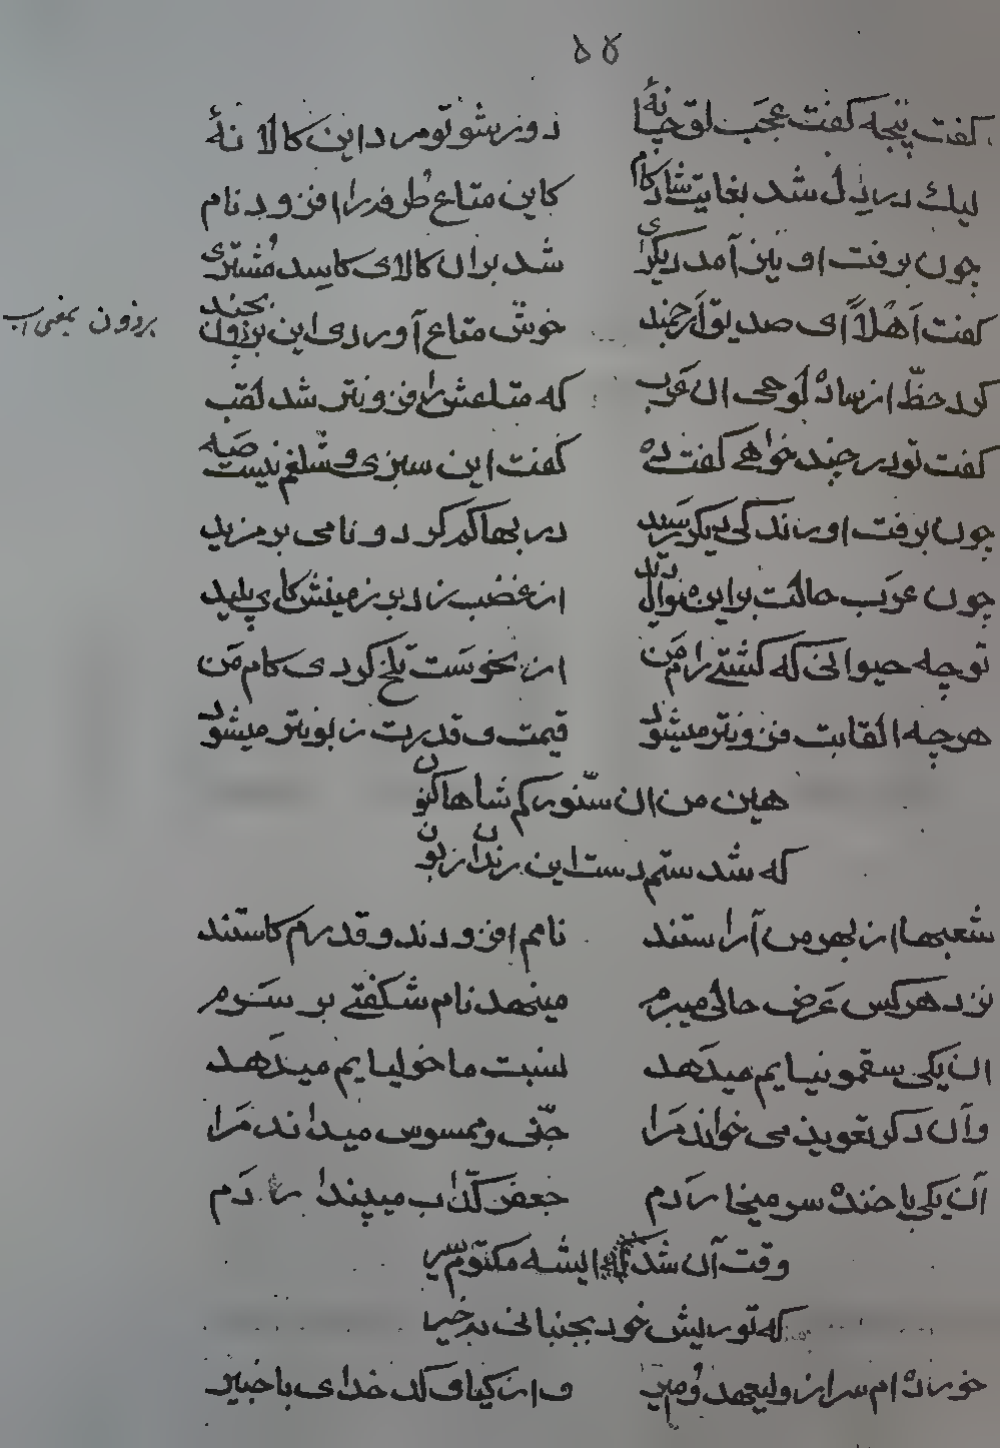 ۵۴
گفت پنجه گفت عجب لق چانهٔ دور شو تو مرد این کالا نهٔ
لیك در دل شد بغایت شادکام کاین متاع طرفه را افزود نام
چون برفت او نیز آمد دیگری شد بران کالای کاسد مشتری
گفت اهلاً ای صدیق ارجمند خوش متاع آوردی این برذون بچند
برذون بمعنی اسب
کرد حظّ از ساده لوحی ان عرب که متاعش را فزونتر شد لقب
گفت تو بر چند خواهی گفت ده گفت این سبزی و شلغم نیست صه
چون برفت او رندکی دیگر رسید در بها کم کرد و نامی بر مزید
چون عرب حالت براین منوال دید از غضب زد بر زمینش کای پلید
تو چه حیوانی که گشتی رام من از نحوست تلخ کردی کام من
هرچه القابت فزونتر میشود قیمت و قدرت زبونتر میشود
هین من ان سنّورکم شاها کنون
که شد ستم دست این رندان زبون
شعبها از بهر من آراستند نامم افزودند و قدرم کاستند
نزد هرکس عرض حالی میبرم مینهد نام شگفتی بر سرم
ان یکی سقمونیایم میدهد نسبت ماخولیایم میدهد
وآن دگر تعویذ می خواند مرا جنّی و ممسوس میداند مرا
آن یکی با خنده سر میخاردم جعفر کذّاب میپنداردم
وقت آن شد ایشه مکتوم سر
که تو ریش خود بجنبانی بخیر
خورده ام سر از ولیعهد و میر و از کیا و کلد خدای باخبیر